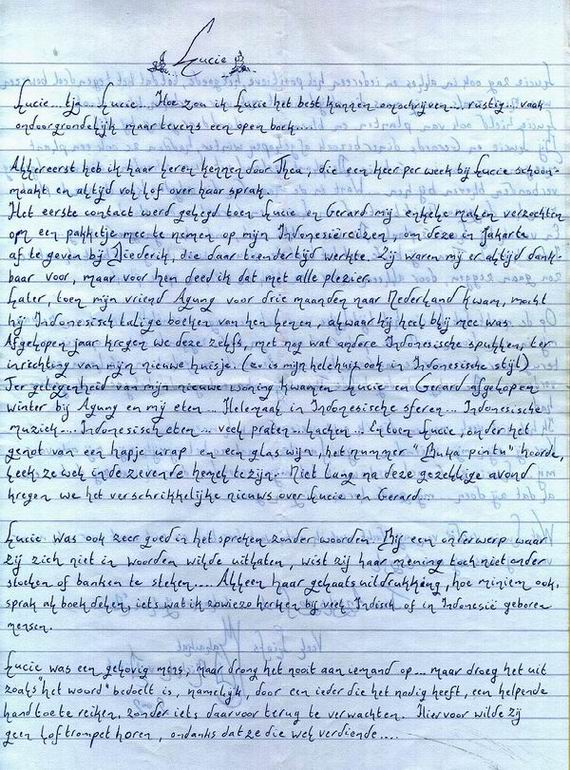 Lucie
Lucie... tja... Lucie. Hoe zou ik Lucie het best kunnen omschrijven... rustig... vaak
ondoorgrondelijk maar tevens een open boek....
Allereerst heb ik haar leren kennen door Thea, die een keer per week bij Lucie schoon-
maakt en altijd vol lof over haar sprak.
Het eerste contact werd gelegd toen Lucie en Gerard mij enkele malen verzochten
om een pakketje mee te nemen op mijn Indonesiëreizen, om deze in Jakarta
af te geven bij Diederik, die daar toendertijd werkte. Zij waren mij er altijd dank-
baar voor, maar voor hen deed ik dat met alle plezier.
Later, toen mijn vriend Agung voor drie maanden naar Nederland kwam, mocht
hij Indonesisch talige boeken van hen lenen, alwaar hij heel blij mee was.
Afgelopen jaar kregen we deze zelfs, met nog wat andere Indonesische spullen, ter
inrichting van mijn nieuwe huisje. (eo is mijn hele huis ook in Indonesische stijl)
Ter gelegenheid van mijn nieuwe woning kwamen Lucie en Gerard afgelopen
winter bij Agung en mij eten... Helemaal in Indonesische sferen... Indonesische
muziek.... Indonesisch eten... veel praten.. lachen... En toen Lucie, onder het
genot van een hapje urap en een glas wijn, het nummer "Buka pintu" hoorde,
leek ze wel in de zevende hemel te zijn. Niet lang na deze gezellige avond
kregen we het verschrikkelijke nieuws over Lucie en Gerard.
Lucie was ook zeer goed in het spreken zonder woorden. Bij een onderwerp waar
zij zich niet in woorden wilde uitlaten, wist zij haar mening toch niet onder
stoelen of banken te steken.... Alleen haar gelaatsuitdrukking, hoe miniem ook,
sprak al boekdelen, iets wat ik sowieso herken bij veel Indisch of in Indonesië geboren
mensen.
Lucie was een gelovig mens, maar drong het nooit aan iemand op... maar droeg het uit
zoals "het woord" bedoelt is, namelijk, door een ieder die het nodig heeft, een helpende
hand toe te reiken, zonder iets daarvoor terug te verwachten. Hiervoor wilde zij
geen loftrompet horen, ondanks dat ze die wel verdiende....